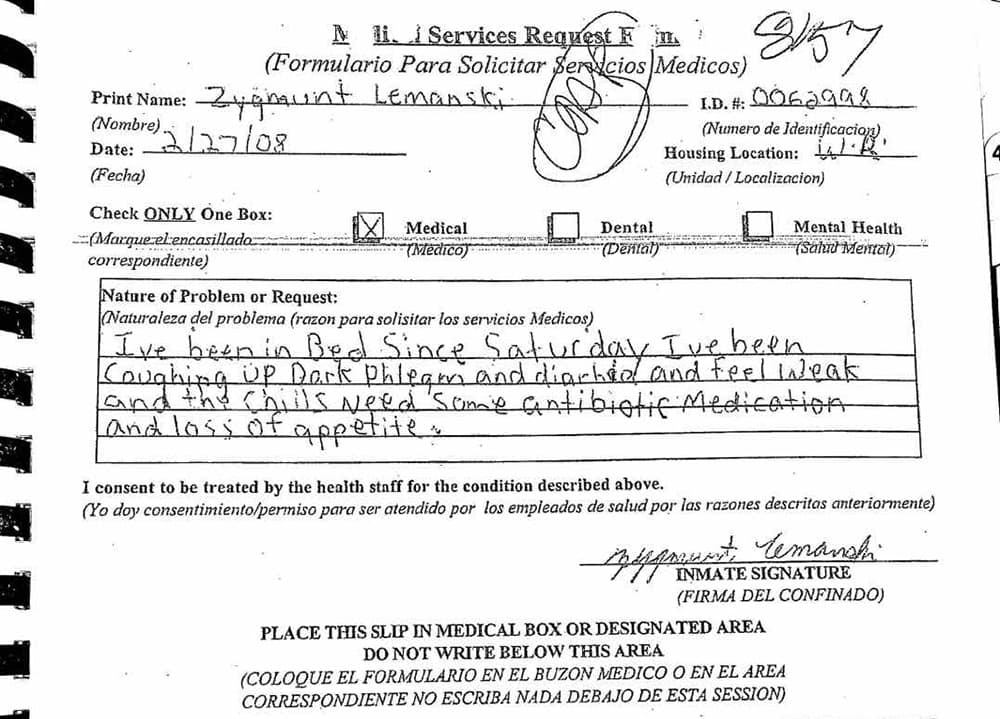 Services Request
(Formulario Para Solicitar Servicios Medicos)
Print Name: Zygmunt Lemanski I.D. #: 0062998
(Nombre) (Numero de Identificacion)
Date: 2/27/08 Housing Location: W.R.
(Fecha) (Unidad / Localizacion)
Check ONLY One Box: Medical Dental Mental Health
(Marque el encasillado (Medico) (Dental) (Salud Mental)
correspondiente)
Nature of Problem or Request:
(Naturaleza del problema (razon para solisitar los servicios Medicos)
Ive been in Bed Since Saturday Ive been
Coughing up Dark phlegm and diarhea and feel weak
and the chills Need some antibiotic Medication
and loss of appetite.
I consent to be treated by the health staff for the condition described above.
(Yo doy consentimiento/permiso para ser atendido por los empleados de salud por las razones descritas anteriormente)
Zygmunt Lemanski
INMATE SIGNATURE
(FIRMA DEL CONFINADO)
PLACE THIS SLIP IN MEDICAL BOX OR DESIGNATED AREA
DO NOT WRITE BELOW THIS AREA
(COLOQUE EL FORMULARIO EN EL BUZON MEDICO O EN EL AREA
CORRESPONDIENTE NO ESCRIBA NADA DEBAJO DE ESTA SESSION)